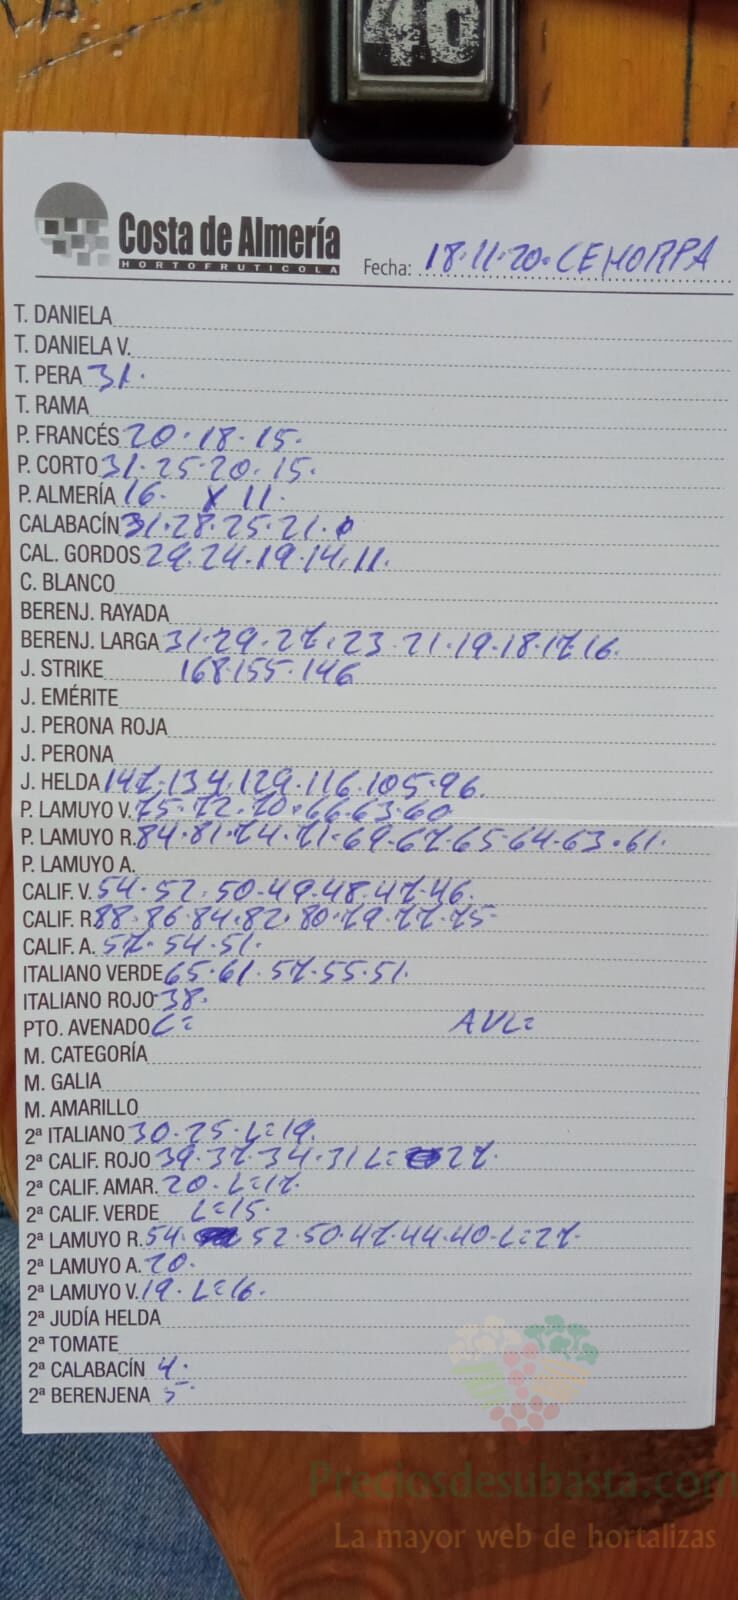 46
Costa de Almería
HORTOFRUTICOLA
Fecha: 18.11.20. CEHORPA
T. DANIELA
T. DANIELA V.
T. PERA 31.
T. RAMA
P. FRANCÉS 20.18.15.
P. CORTO 31.25.20.15.
P. ALMERÍA 16. X 11.
CALABACÍN 31.28.25.21.
CAL. GORDOS 29.24.19.14.11.
C. BLANCO
BERENJ. RAYADA
BERENJ. LARGA 31.29.27.23.21.19.18.17.16.
J. STRIKE 168.155.146
J. EMÉRITE
J. PERONA ROJA
J. PERONA
J. HELDA 147.134.129.116.105.96.
P. LAMUYO V. 75.72.70.66.63.60
P. LAMUYO R. 84.81.74.71.69.67.65.64.63.61.
P. LAMUYO A.
CALIF. V. 54.52.50.49.48.47.46.
CALIF. R. 88.86.84.82.80.79.77.75
CALIF. A. 57.54.51.
ITALIANO VERDE 65.61.57.55.51.
ITALIANO ROJO 38.
PTO. AVENADO C= AVL=
M. CATEGORÍA
M. GALIA
M. AMARILLO
2ª ITALIANO 30.25.L=19.
2ª CALIF. ROJO 39.37.34.31 L= 27.
2ª CALIF. AMAR. 20.L=17.
2ª CALIF. VERDE L=15.
2ª LAMUYO R. 54. 52.50.47.44.40.L=27.
2ª LAMUYO A. 20.
2ª LAMUYO V. 19.L=16.
2ª JUDÍA HELDA
2ª TOMATE
2ª CALABACÍN 4.
2ª BERENJENA 5
Preciosdesubasta.com
La mayor web de hortalizas